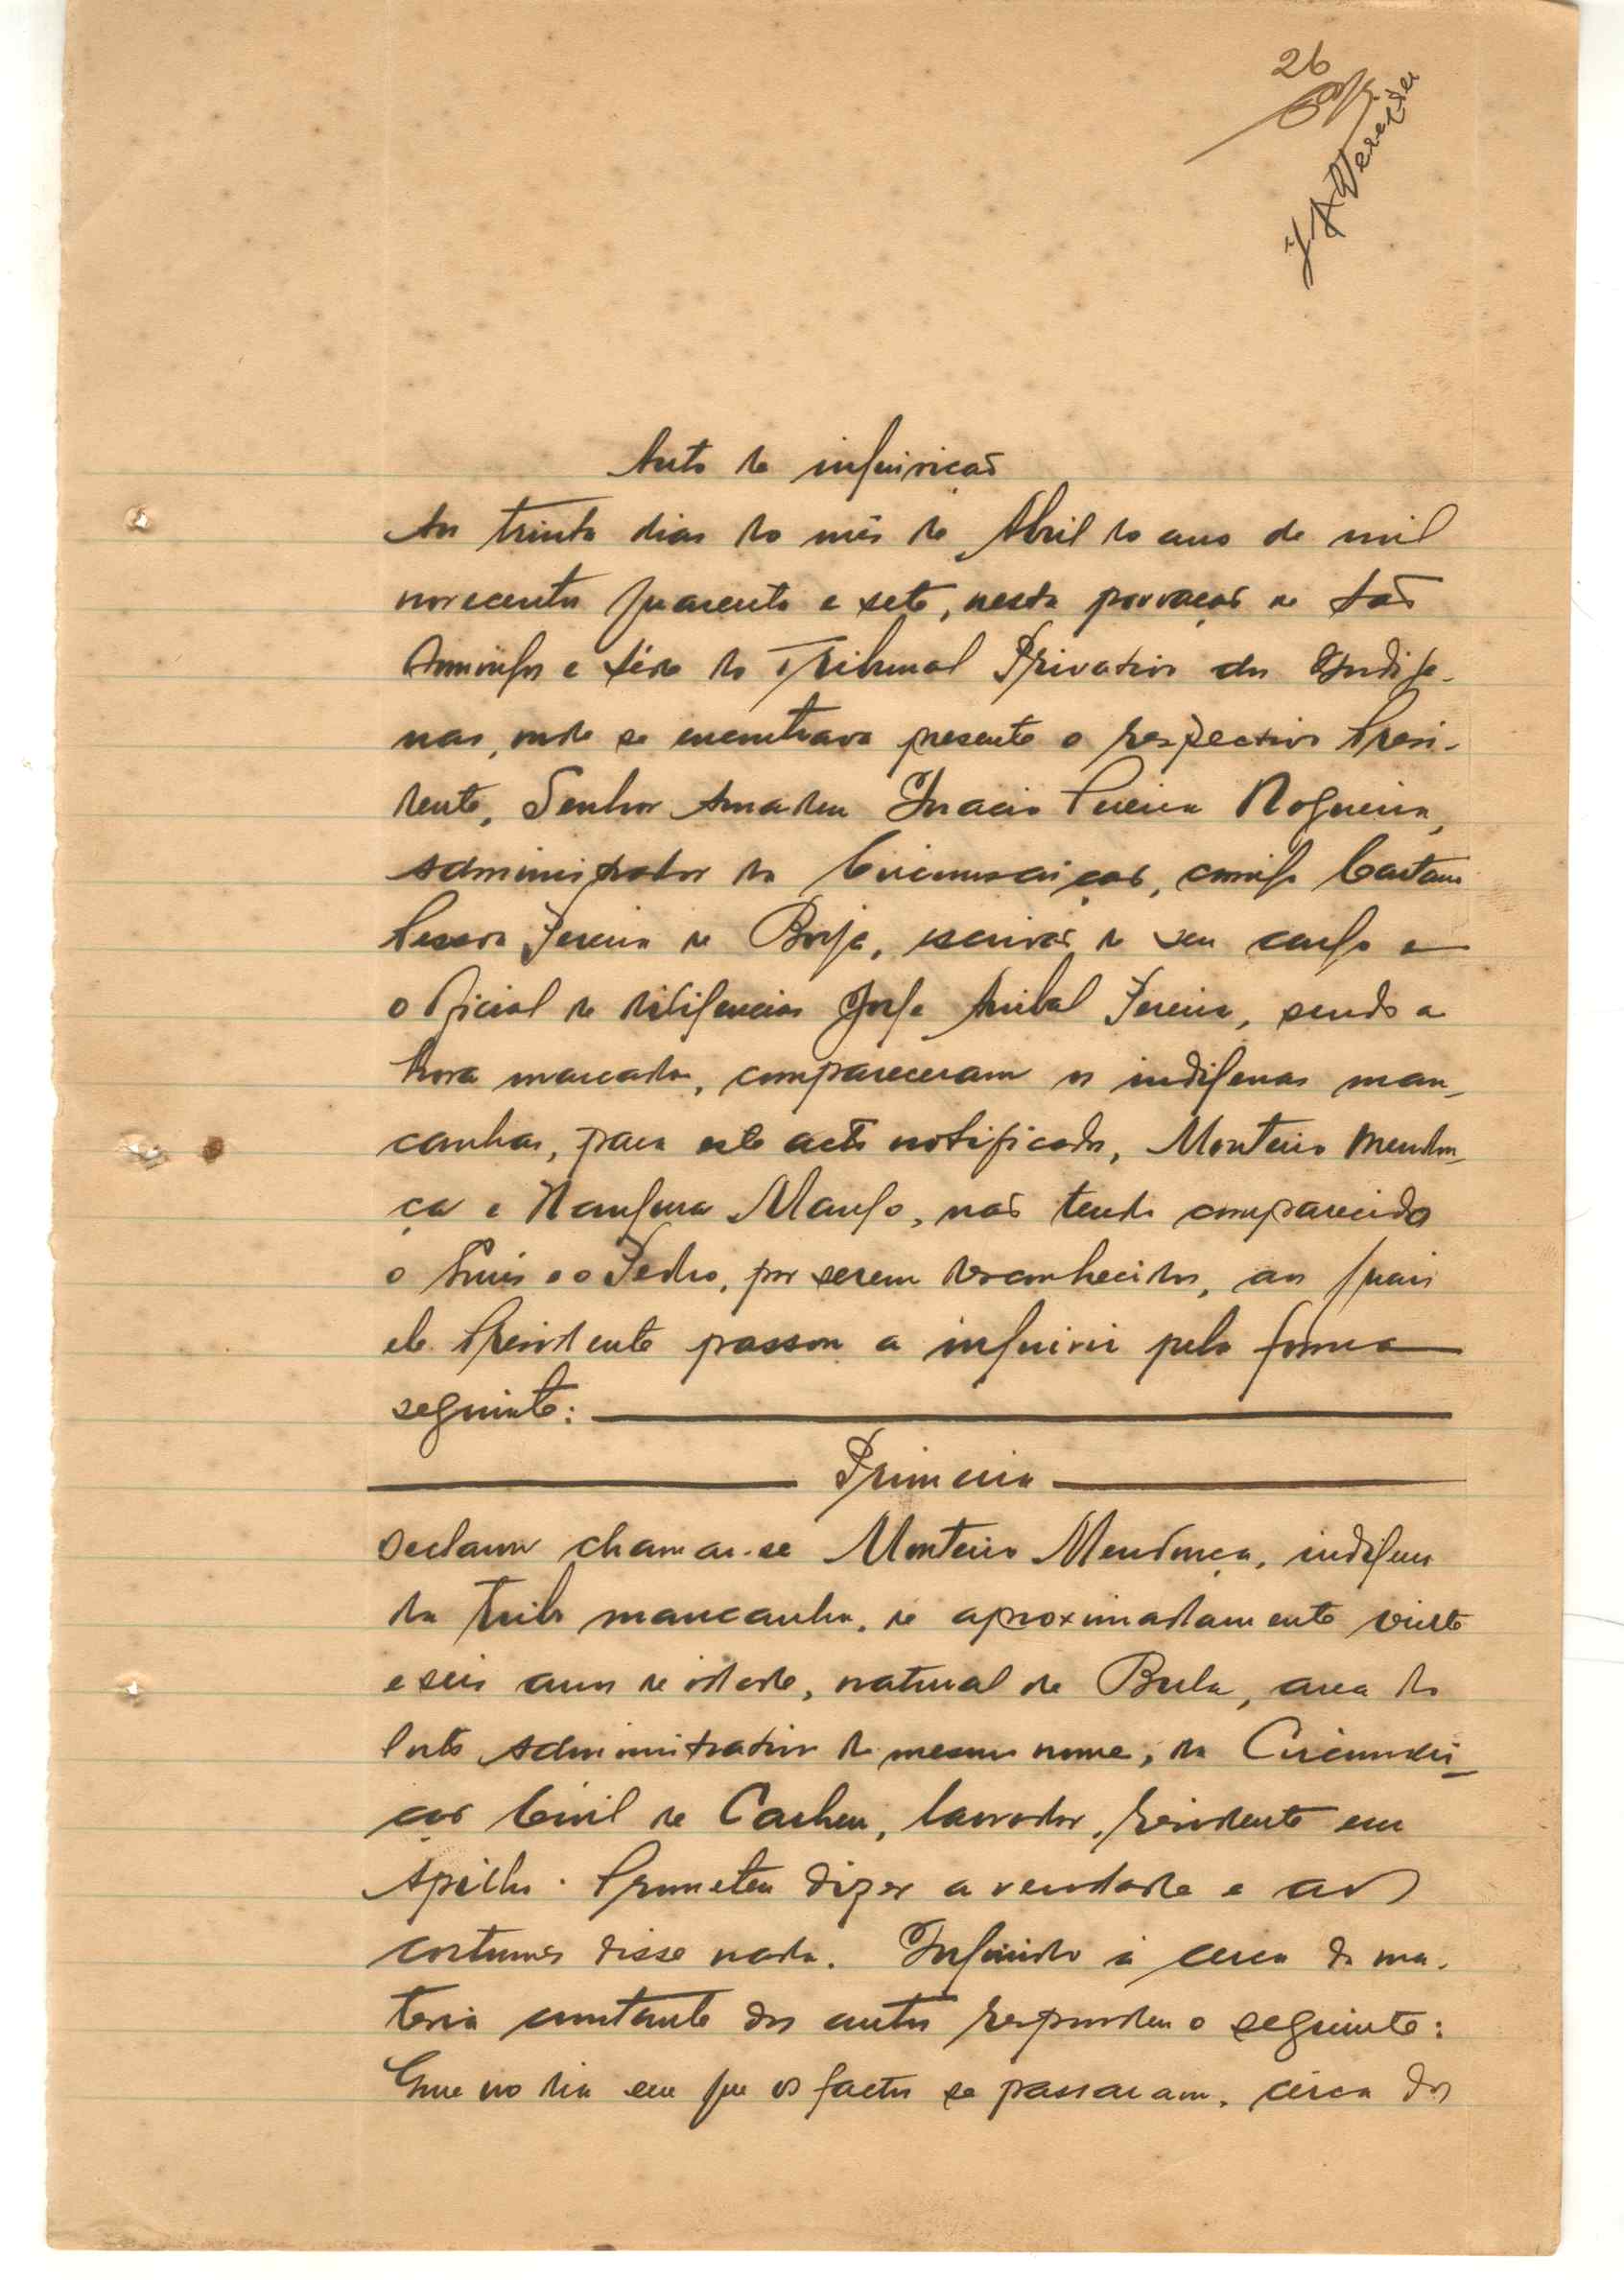 26
Auto de inquirição
Aos trinta dias do mês de Abril do ano de mil
novecentos quarenta e sete, nesta povoação de São
Domingos e séde do Tribunal Privativo dos Indige-
nas, onde se encontrava presente o respectivo Presi-
dente, Senhor Amadeu Inacio Pereira Nogueira,
Administrador da Circunscrição, comigo Caetano
Pessoa Pereira de Borja, escrivão de seu cargo e
o Oficial de diligencias Jorge Anibal Pereira, sendo a
hora marcada, compareceram os indigenas man-
canhas, para este acto notificados, Monteiro Mendon-
ça e Mango, não tendo comparecido
o Luis e o Pedro, por serem desconhecidos, aos quais
ele Presidente passou a inquirir pela forma
seguinte:
Primeira
Declarou chamar-se Monteiro Mendonça, indigena
da tribo mancanha, de aproximadamente vinte
e seis anos de idade, natural de Bula, area do
Posto Administrativo do mesmo nome, da Circunscri-
ção Civil de Cacheu, lavrador, residente em
Apilho. Prometeu dizer a verdade e aos
costumes disse nada. Inquirido á cerca da ma-
teria constante dos autos respondeu o seguinte:
Que no dia em que os factos se passaram, cerca das